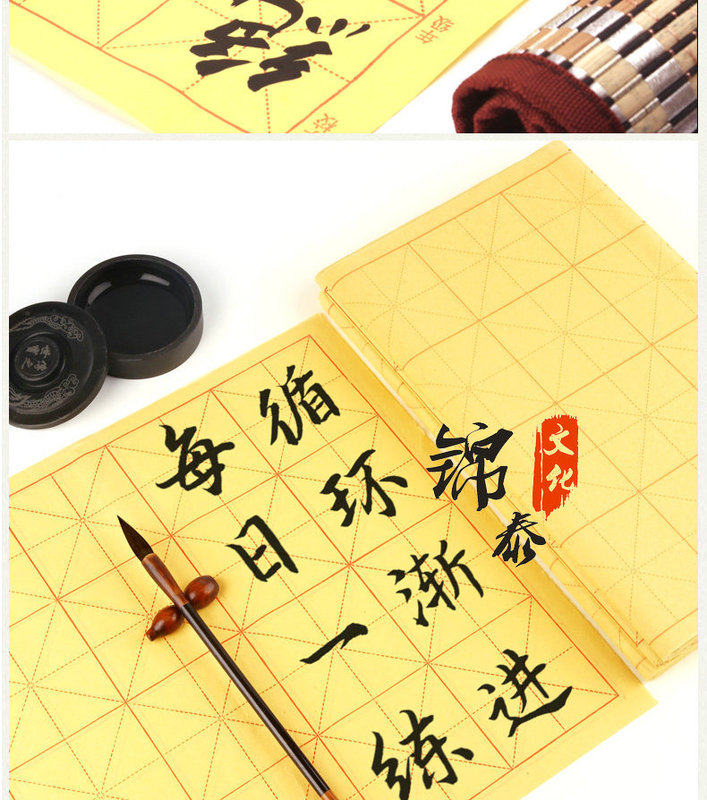 年级
循环渐进
每日一练
锦泰
文化